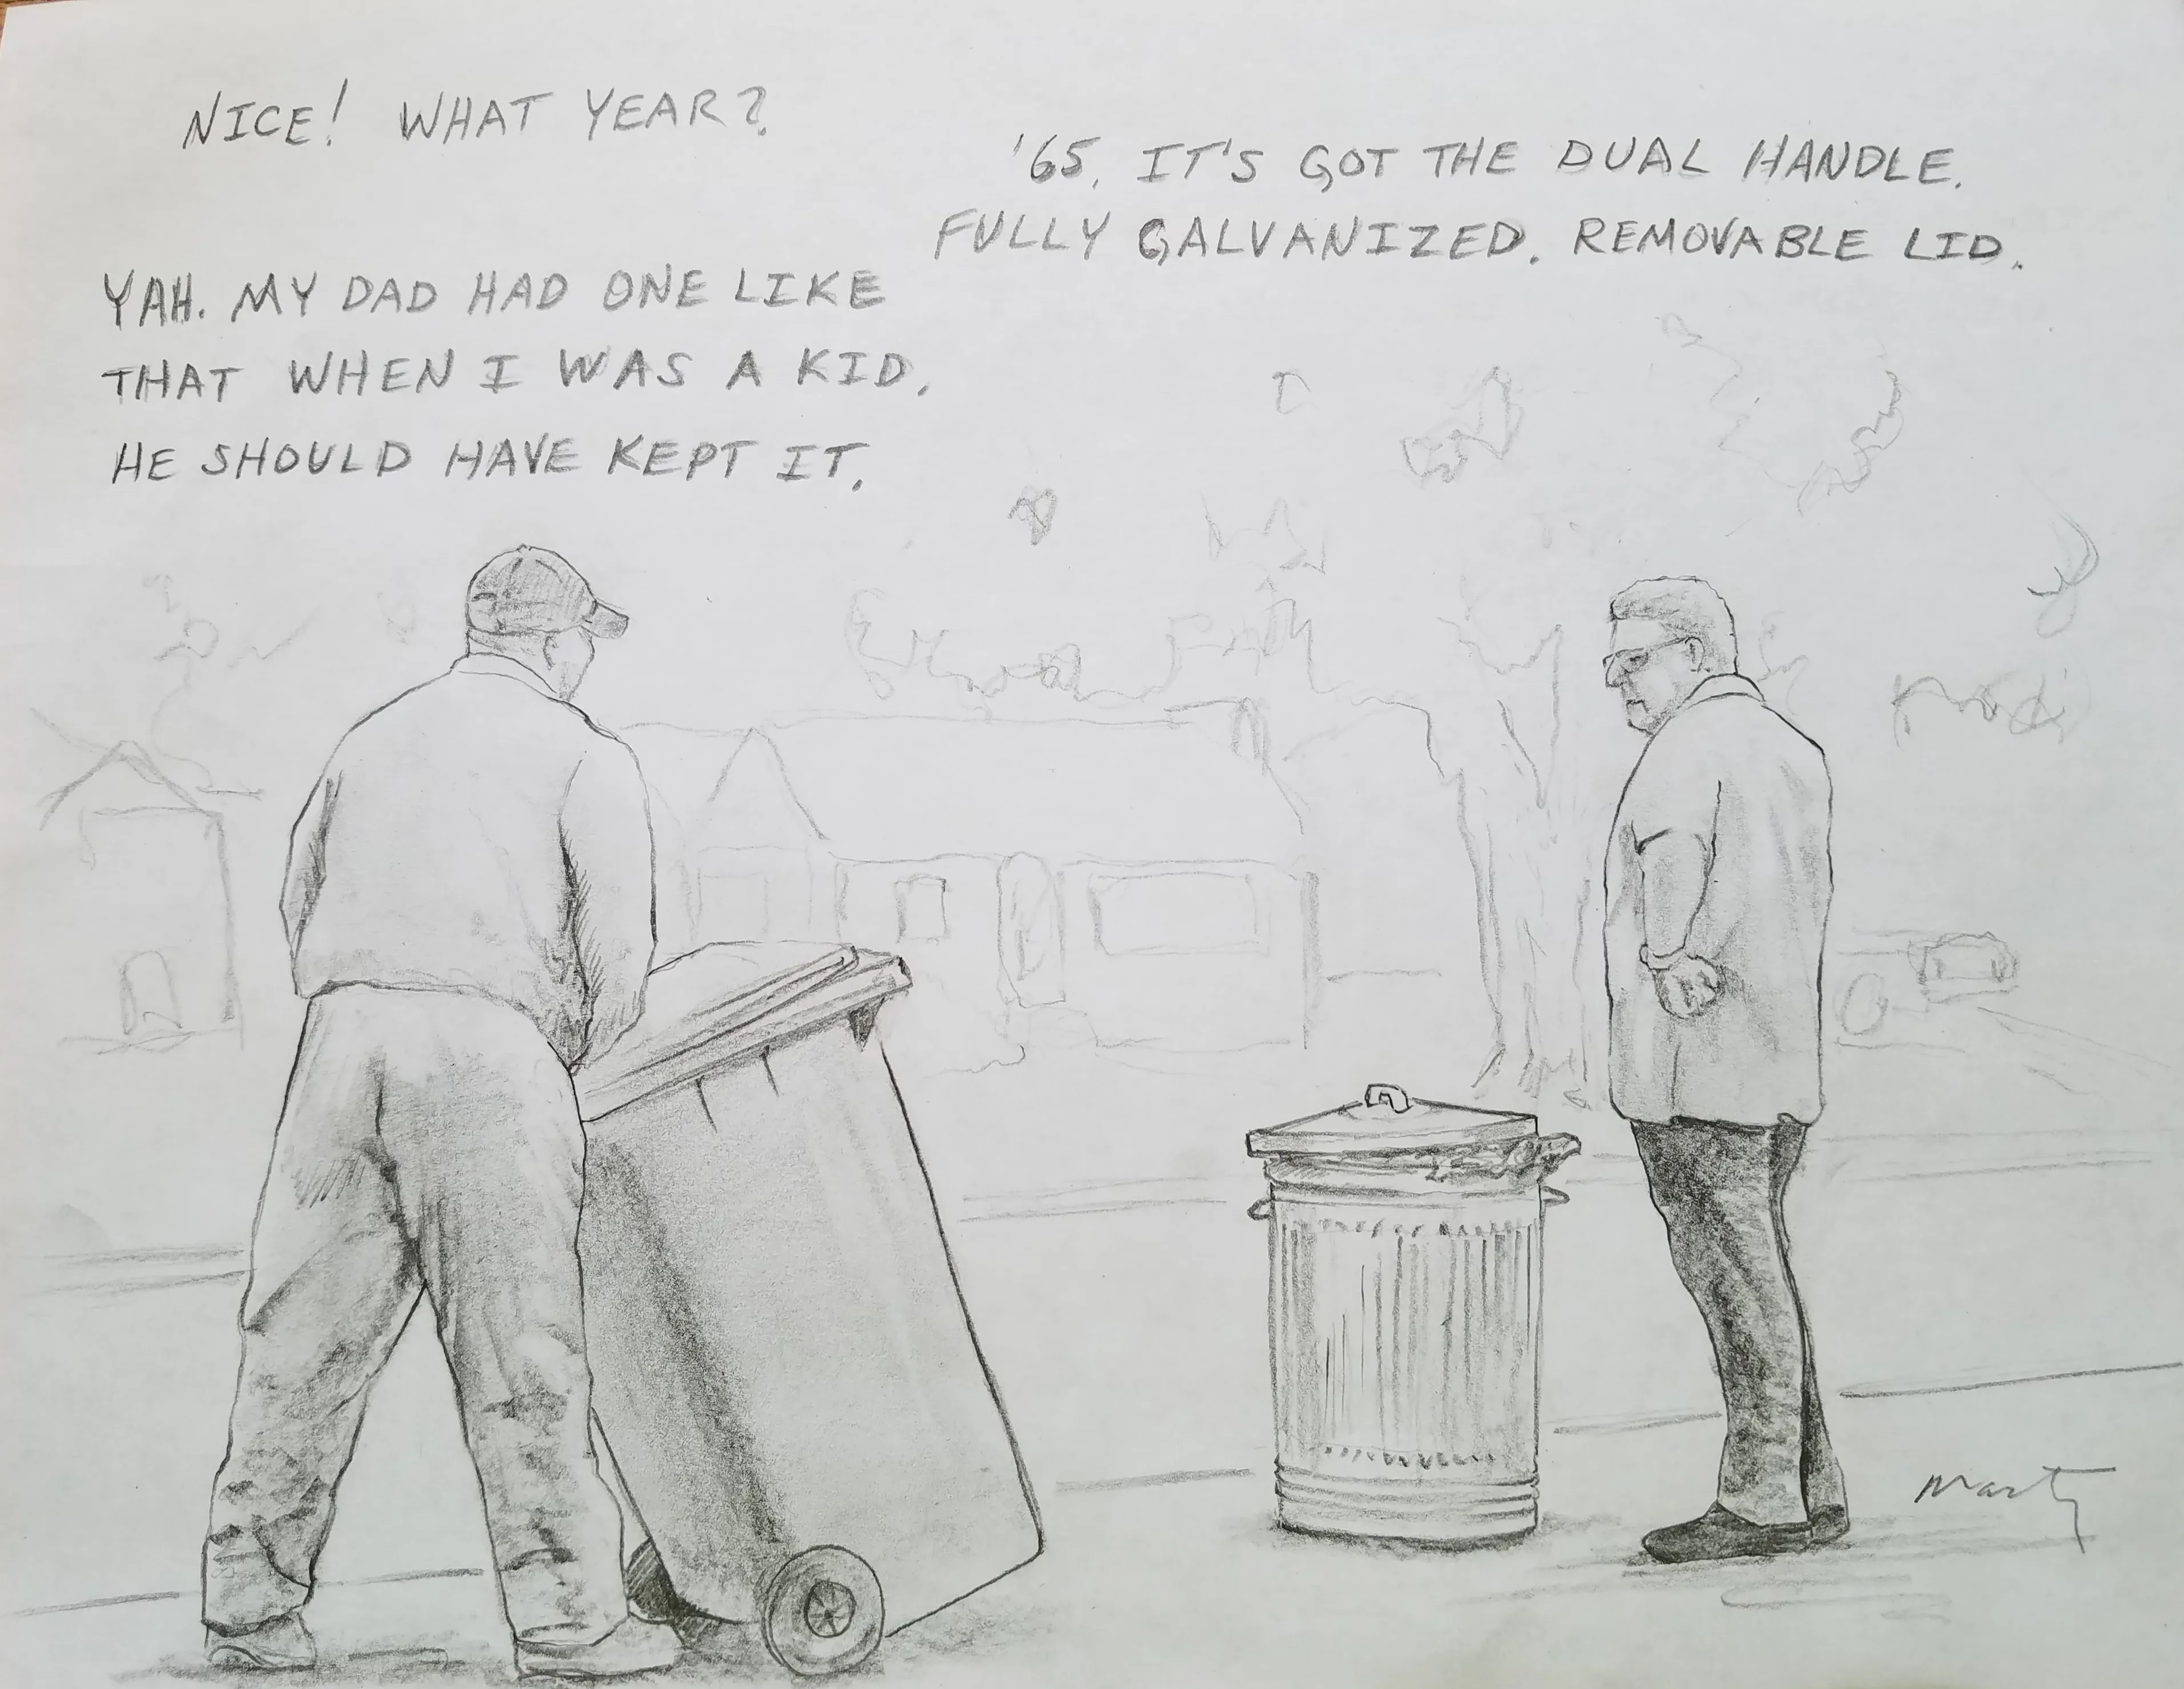 NICE! WHAT YEAR?
'65. IT'S GOT THE DUAL HANDLE.
FULLY GALVANIZED. REMOVABLE LID.
YAH. MY DAD HAD ONE LIKE
THAT WHEN I WAS A KID.
HE SHOULD HAVE KEPT IT.
Marty